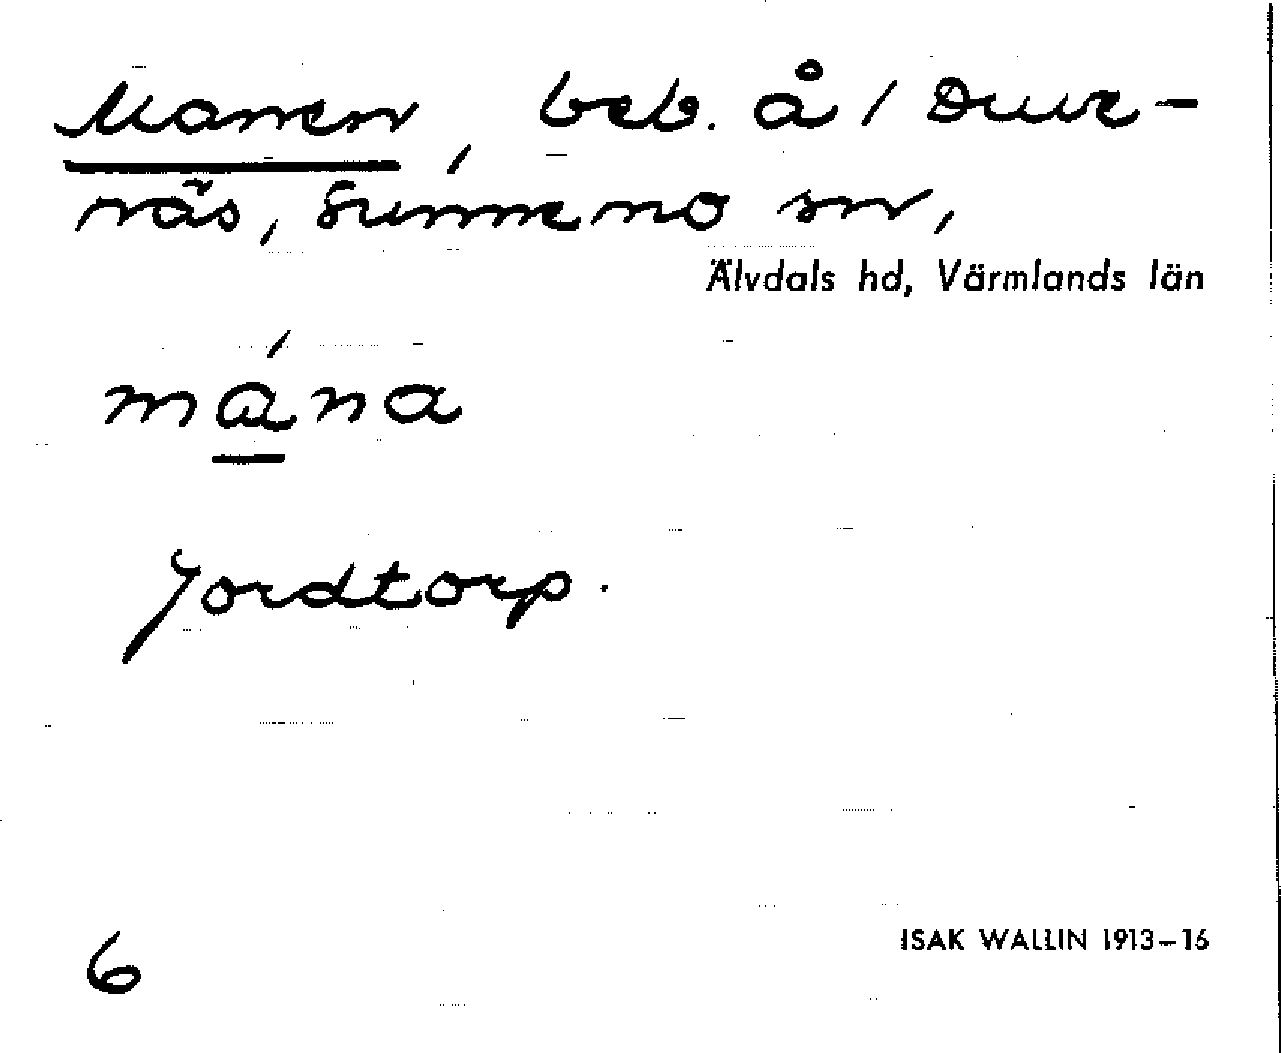 Manen, beb. å / Duve-
näs, Sunnemo sn,
Älvdals hd, Värmlands län
mána
Jordtorp.
6
ISAK WALLIN 1913-16